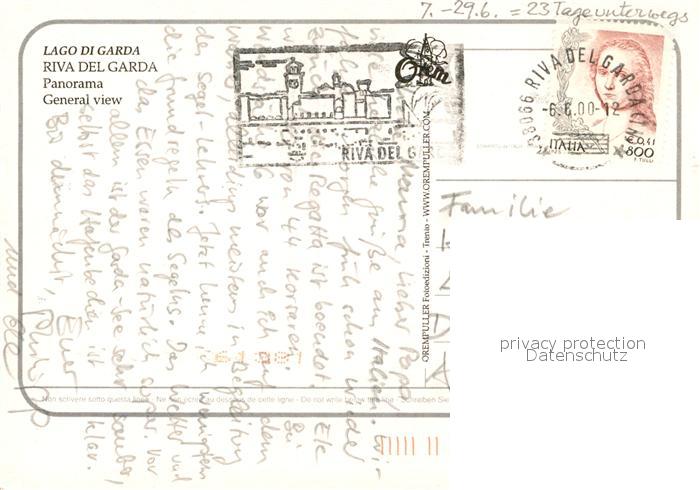 7. - 29.6. = 23 Tage unterwegs
LAGO DI GARDA
RIVA DEL GARDA
Panorama
General view
Orem
RIVA DEL G
38066 RIVA DEL GARDA (TN)
-6.6.00-12
ITALIA
€ 0,41
800
Mama, lieber Papa,
Grüße aus Italien.
morgen früh schon wieder
Regatta ist beendet.
44 Korsaren.
war auch ich auf dem
meistens in Begleitung
des Segel-Lehrers. Jetzt kenne ich wenigstens
die Grundregeln des Segelns. Das Wetter und
das Essen waren natürlich super. Vor
allem ist der Garda-See sehr sauber,
selbst das Hafenbecken ist klar.
Bis demnächst, Euer
Philipp
und Ele
Familie
OREMPULLER Fotoedizioni - Trento - WWW.OREMPULLER.COM
Non scrivere sotto questa linea - Ne rien écrire au dessous de cette ligne - Do not write below this line - Schreiben Sie
privacy protection
Datenschutz